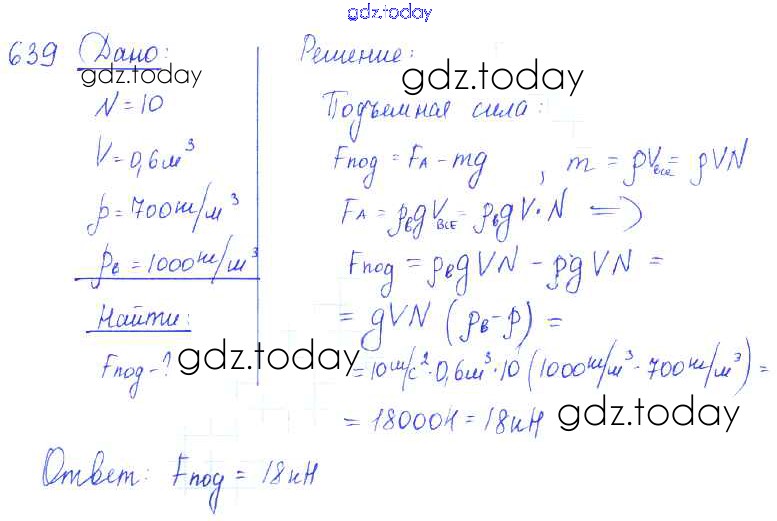 gdz.today
639 Дано:
gdz.today
N = 10
V = 0,6 м³
ρ = 700 кг/м³
ρв = 1000 кг/м³
Найти:
Fпод - ?
gdz.today
Решение:
gdz.today
Подъемная сила:
Fпод = FА - mg, m = ρVвсе = ρVN
FА = ρвgVвсе = ρвgV·N =>
Fпод = ρвgVN - ρgVN =
= gVN (ρв - ρ) =
= 10 м/с² · 0,6 м³ · 10 (1000 кг/м³ - 700 кг/м³) =
= 18000 Н = 18 кН
gdz.today
Ответ: Fпод = 18 кН